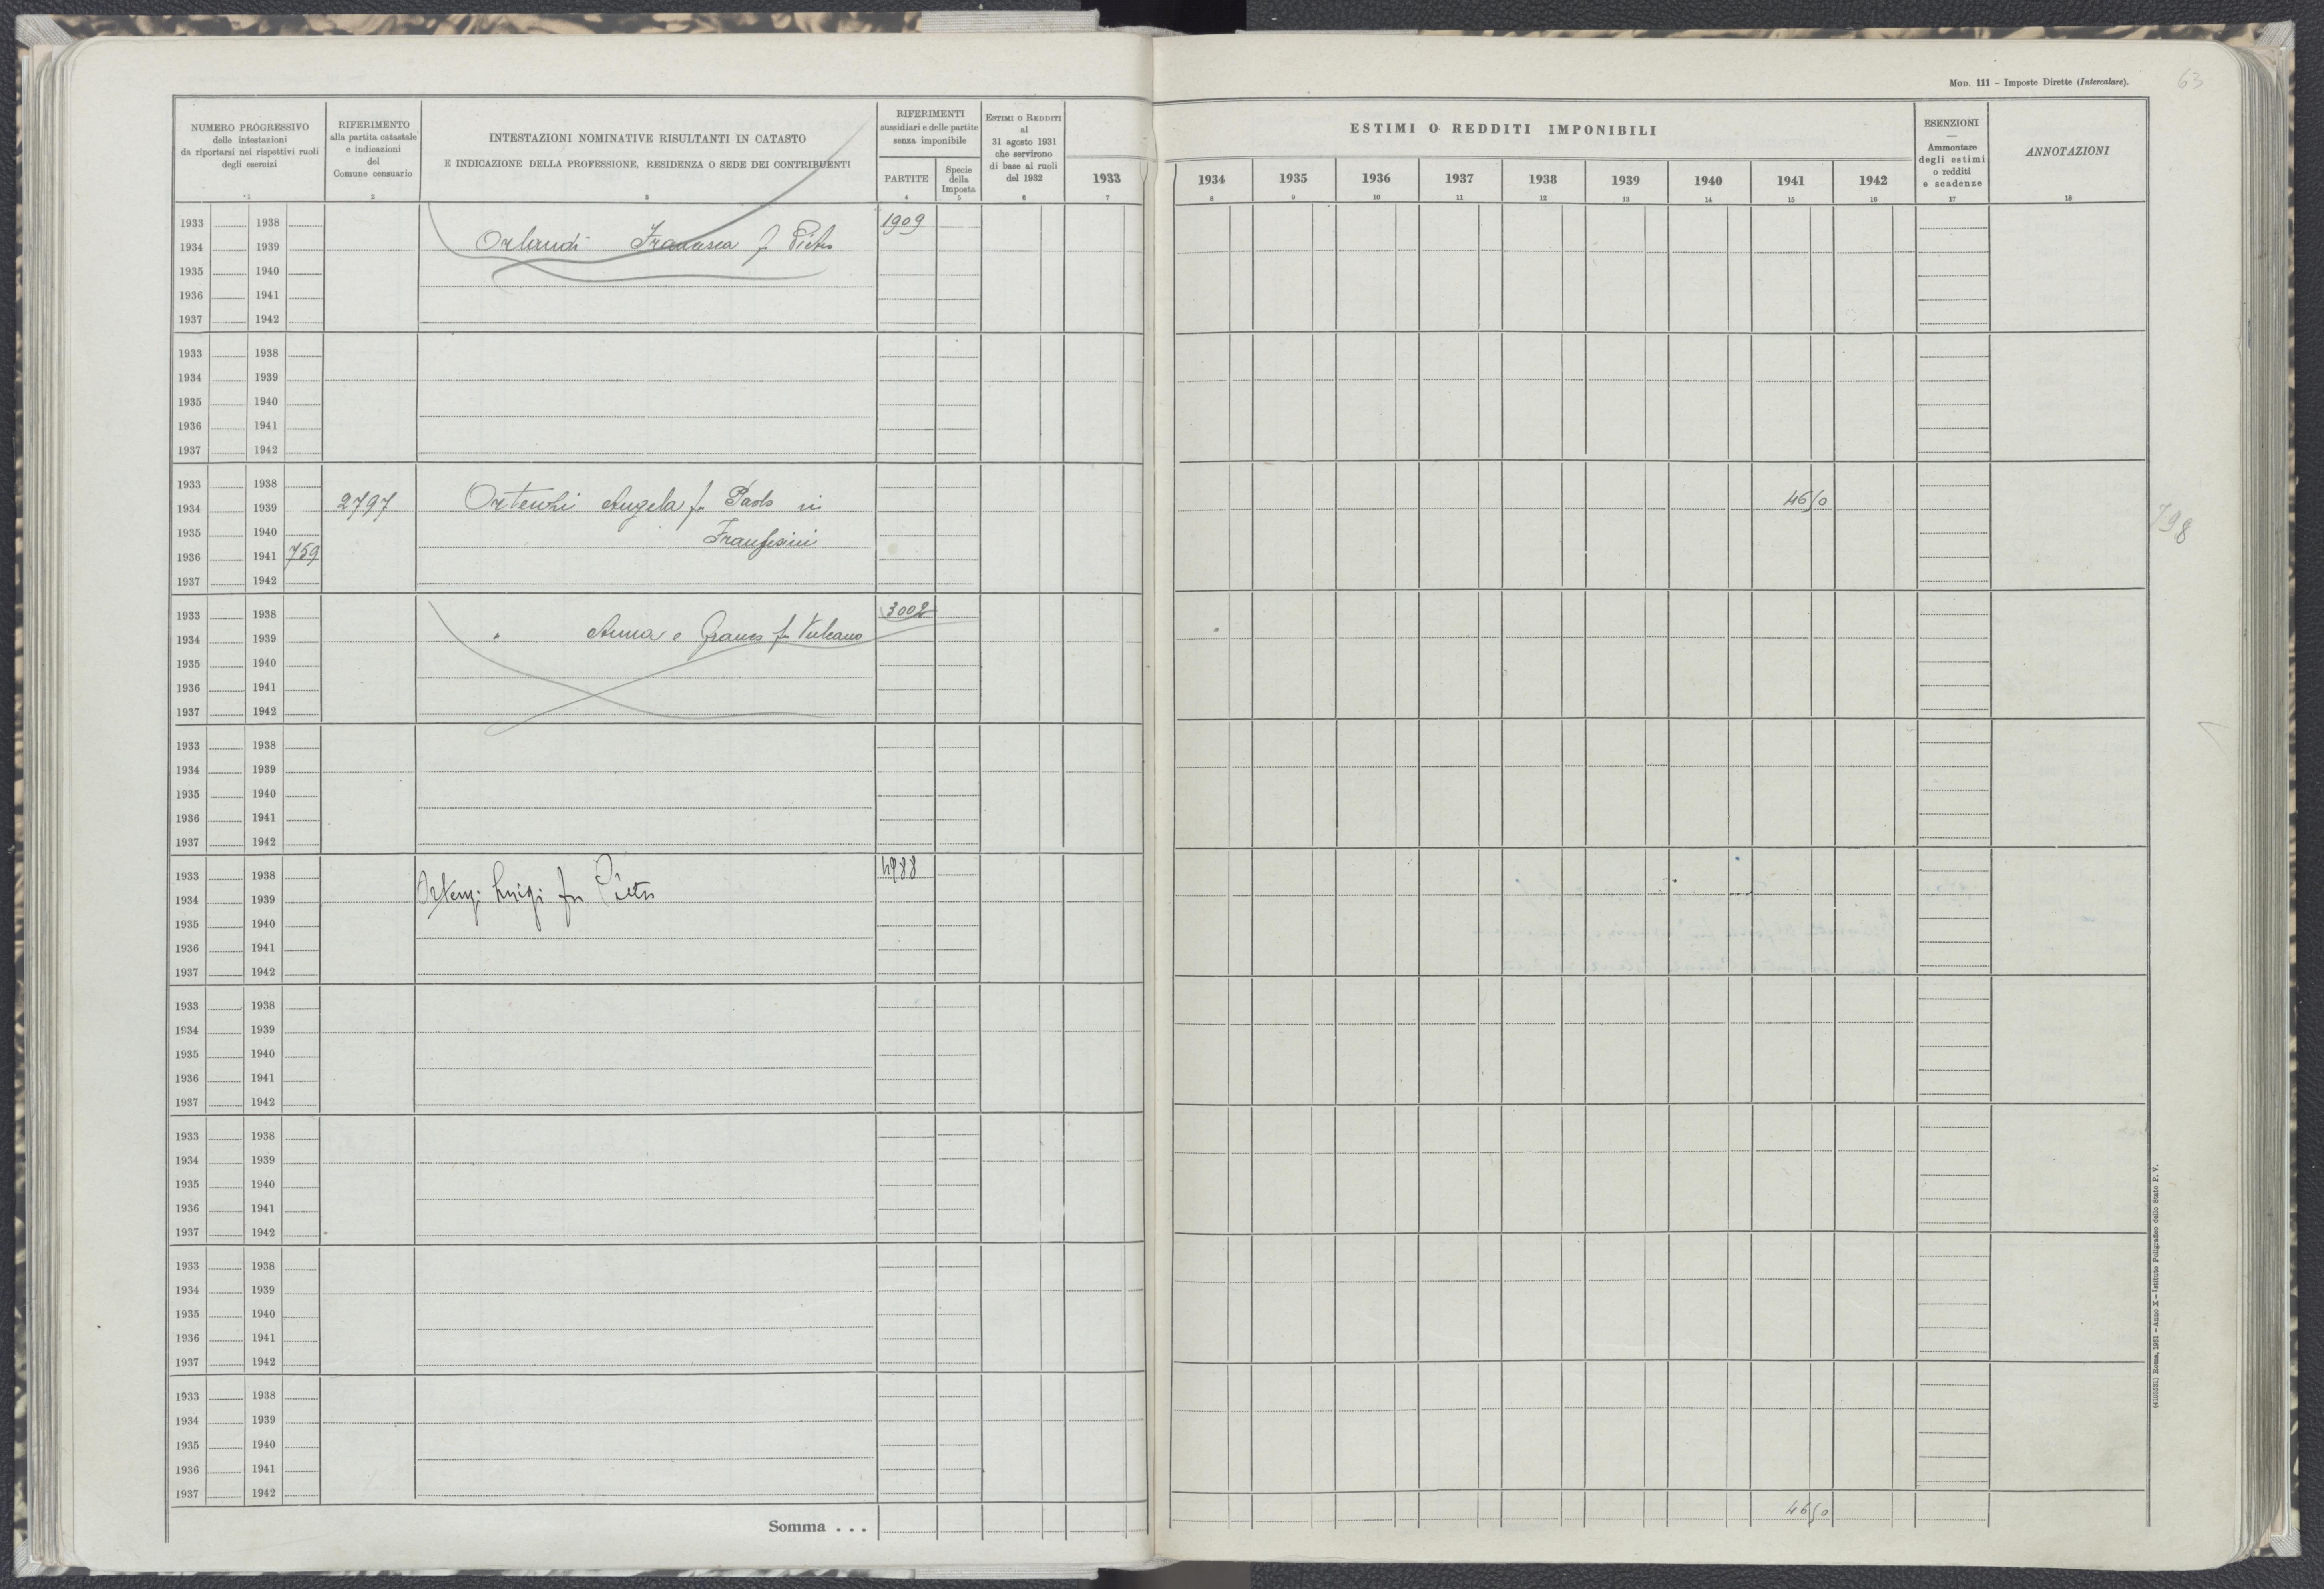 MOD. 111 – Imposte Dirette (Intercalare).
63
NUMERO PROGRESSIVO
delle intestazioni
da riportarsi nei rispettivi ruoli
degli esercizi
1
RIFERIMENTO
alla partita catastale
e indicazioni
del
Comune censuario
2
INTESTAZIONI NOMINATIVE RISULTANTI IN CATASTO
E INDICAZIONE DELLA PROFESSIONE, RESIDENZA O SEDE DEI CONTRIBUENTI
3
RIFERIMENTI
sussidiari e delle partite
senza imponibile
PARTITE
4
Specie
della
Imposta
5
ESTIMI O REDDITI
al
31 agosto 1931
che servirono
di base ai ruoli
del 1932
6
ESTIMI O REDDITI IMPONIBILI
1933 1934 1935 1936 1937 1938 1939 1940 1941 1942
7 8 9 10 11 12 13 14 15 16
ESENZIONI
—
Ammontare
degli estimi
o redditi
e scadenze
17
ANNOTAZIONI
18
1933 1938 1909
1934 1939 Orlandi Francesca f Pietro
1935 1940
1936 1941
1937 1942
1933 1938
1934 1939
1935 1940
1936 1941
1937 1942
1933 1938
1934 1939 2797 Angela fu Paolo in 46 50
798
1935 1940
1936 1941 759
1937 1942
1933 1938 3002
1934 1939 " Anna e fu Vulcano
1935 1940
1936 1941
1937 1942
1933 1938
1934 1939
1935 1940
1936 1941
1937 1942
1933 1938
1934 1939 Ortenzi Luigi fu Pietro
1935 1940
1936 1941
1937 1942
1933 1938
1934 1939
1935 1940
1936 1941
1937 1942
1933 1938
1934 1939
1935 1940
1936 1941
1937 1942
1933 1938
1934 1939
1935 1940
1936 1941
1937 1942
1933 1938
1934 1939
1935 1940
1936 1941
1937 1942
Somma . . . 46 50
(4103531) Roma, 1931 – Anno X – Istituto Poligrafico dello Stato P. V.